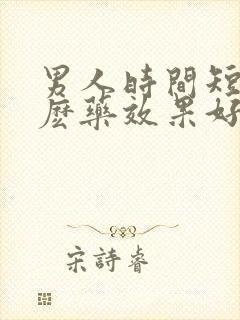 男人時間短
麽藥效果好
宋詩睿